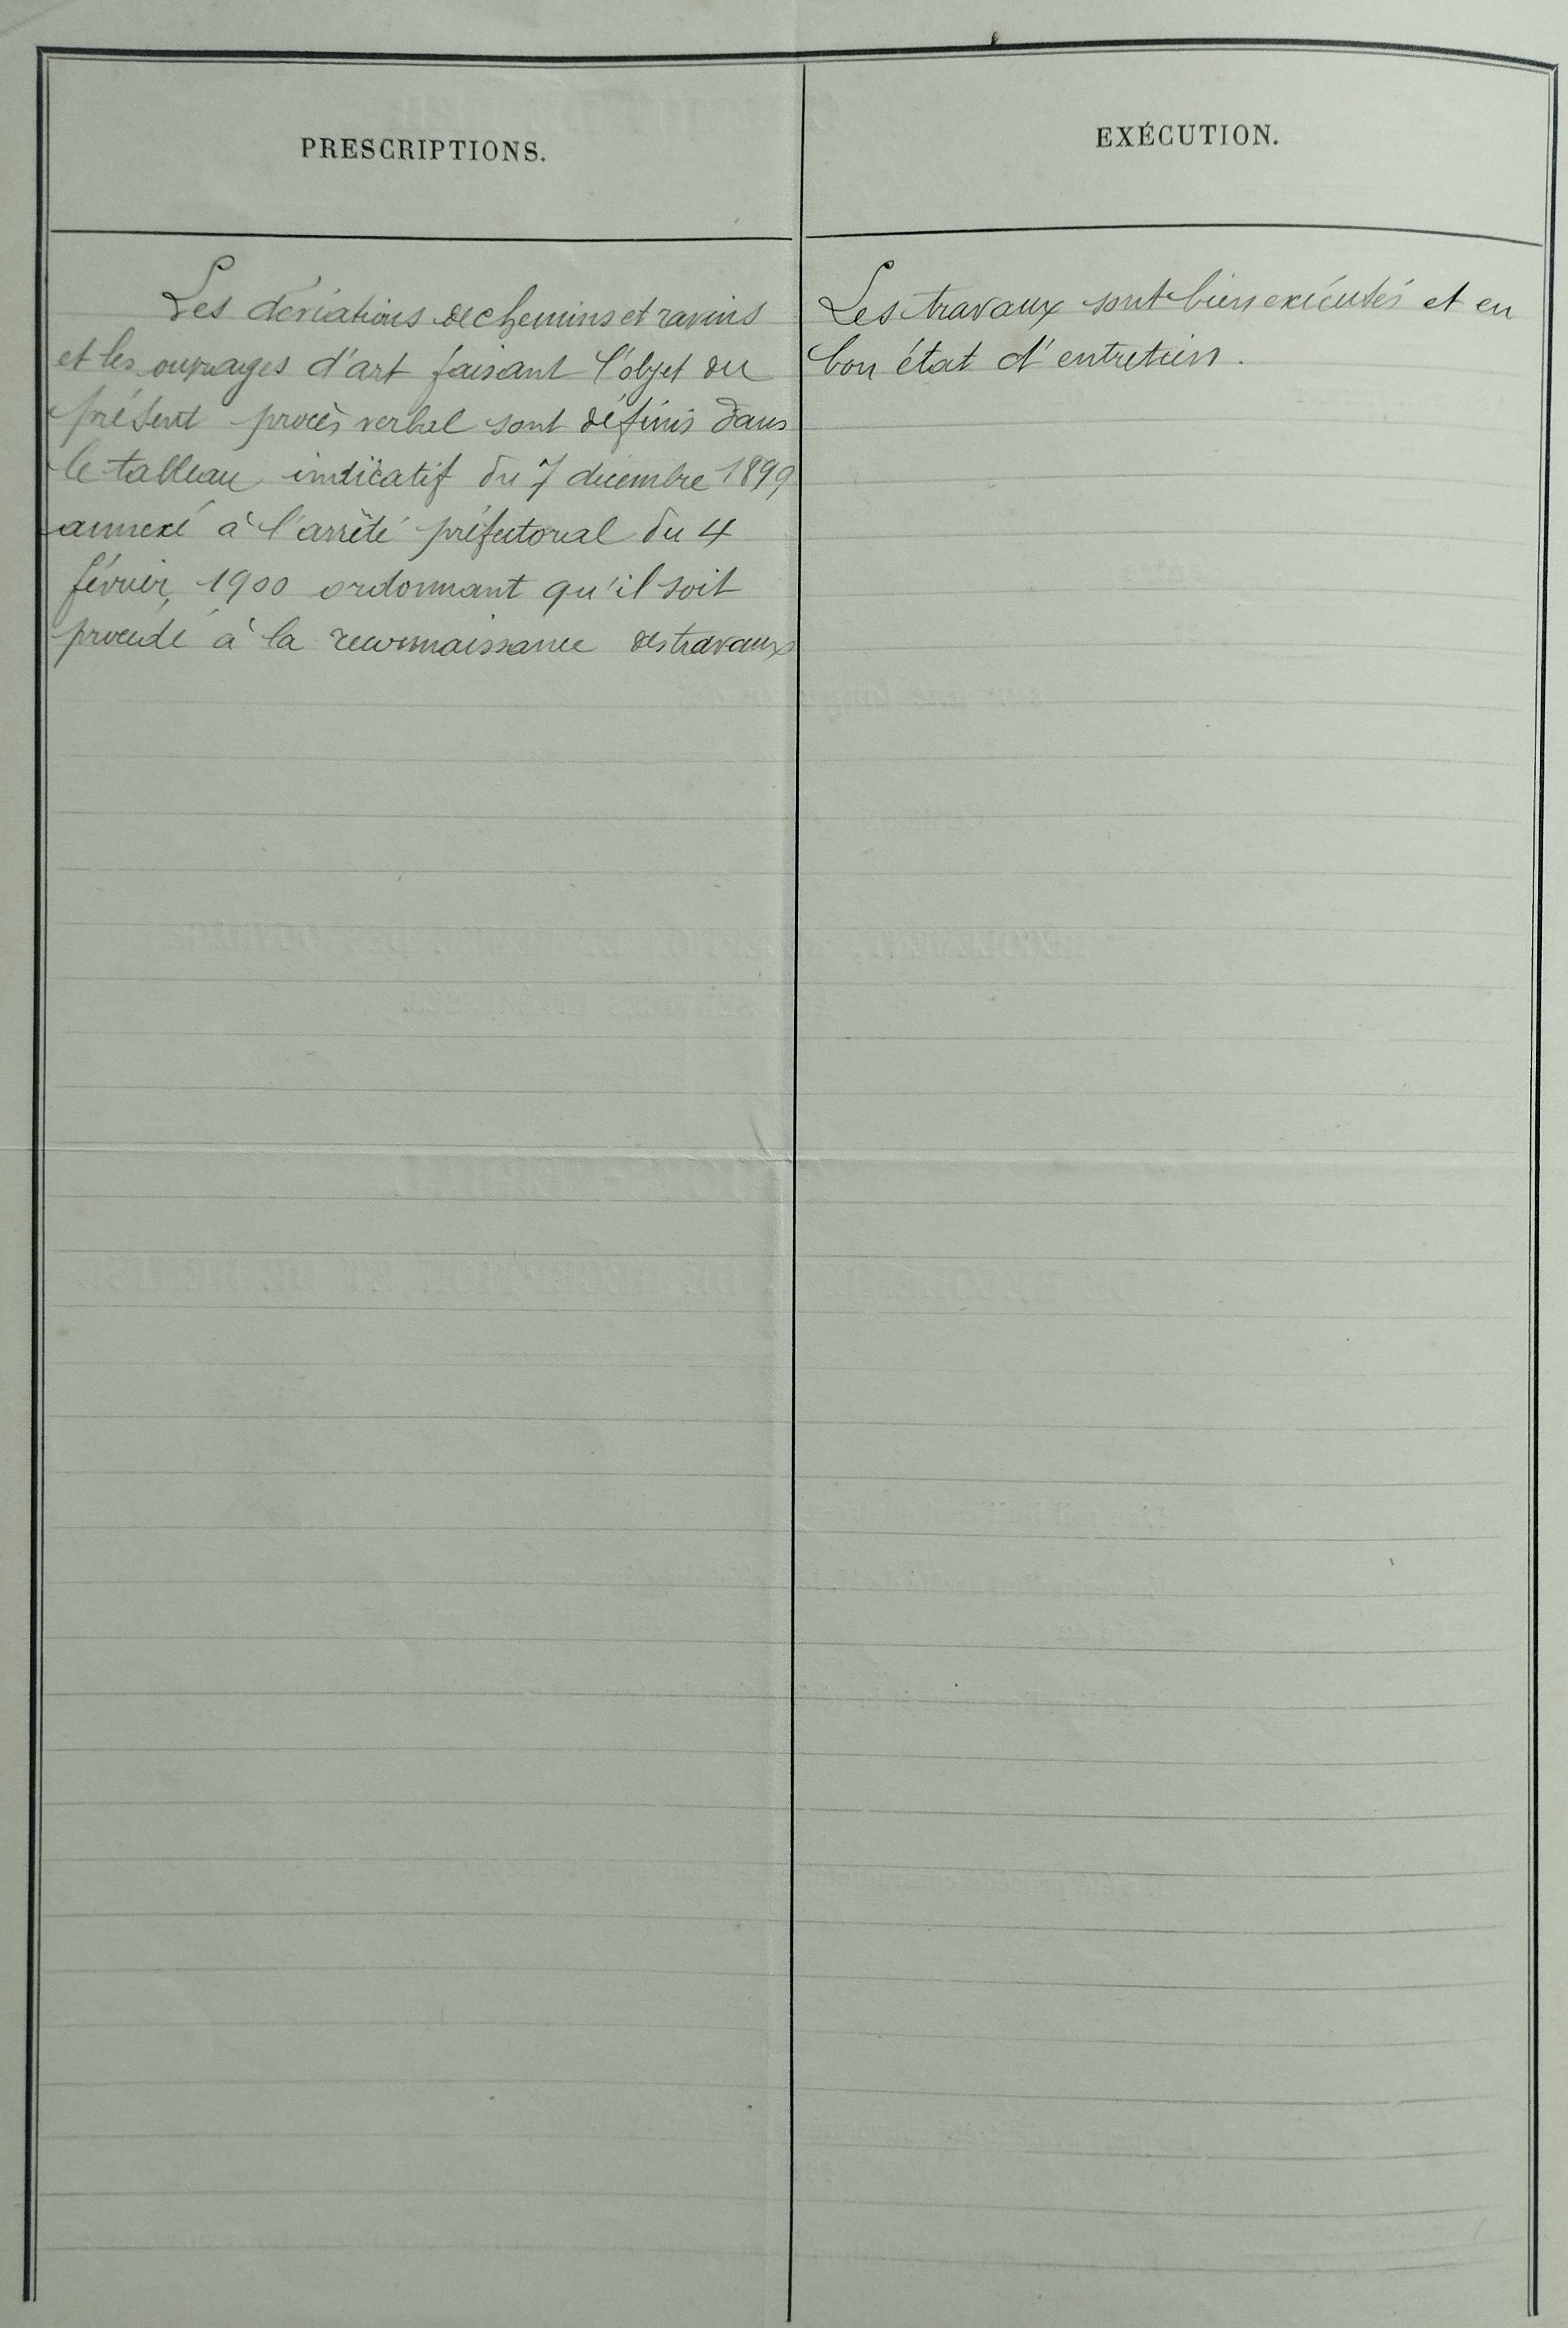 PRESCRIPTIONS.
EXÉCUTION.
Les déviations de chemins et ravins
et les ouvrages d'art faisant l'objet du
présent procès verbal sont définis dans
le tableau indicatif du 7 décembre 1899
annexé à l'arrêté préfectoral du 4
février 1900 ordonnant qu'il soit
procédé à la reconnaissance des travaux
Les travaux sont bien exécutés et en
bon état d'entretien.